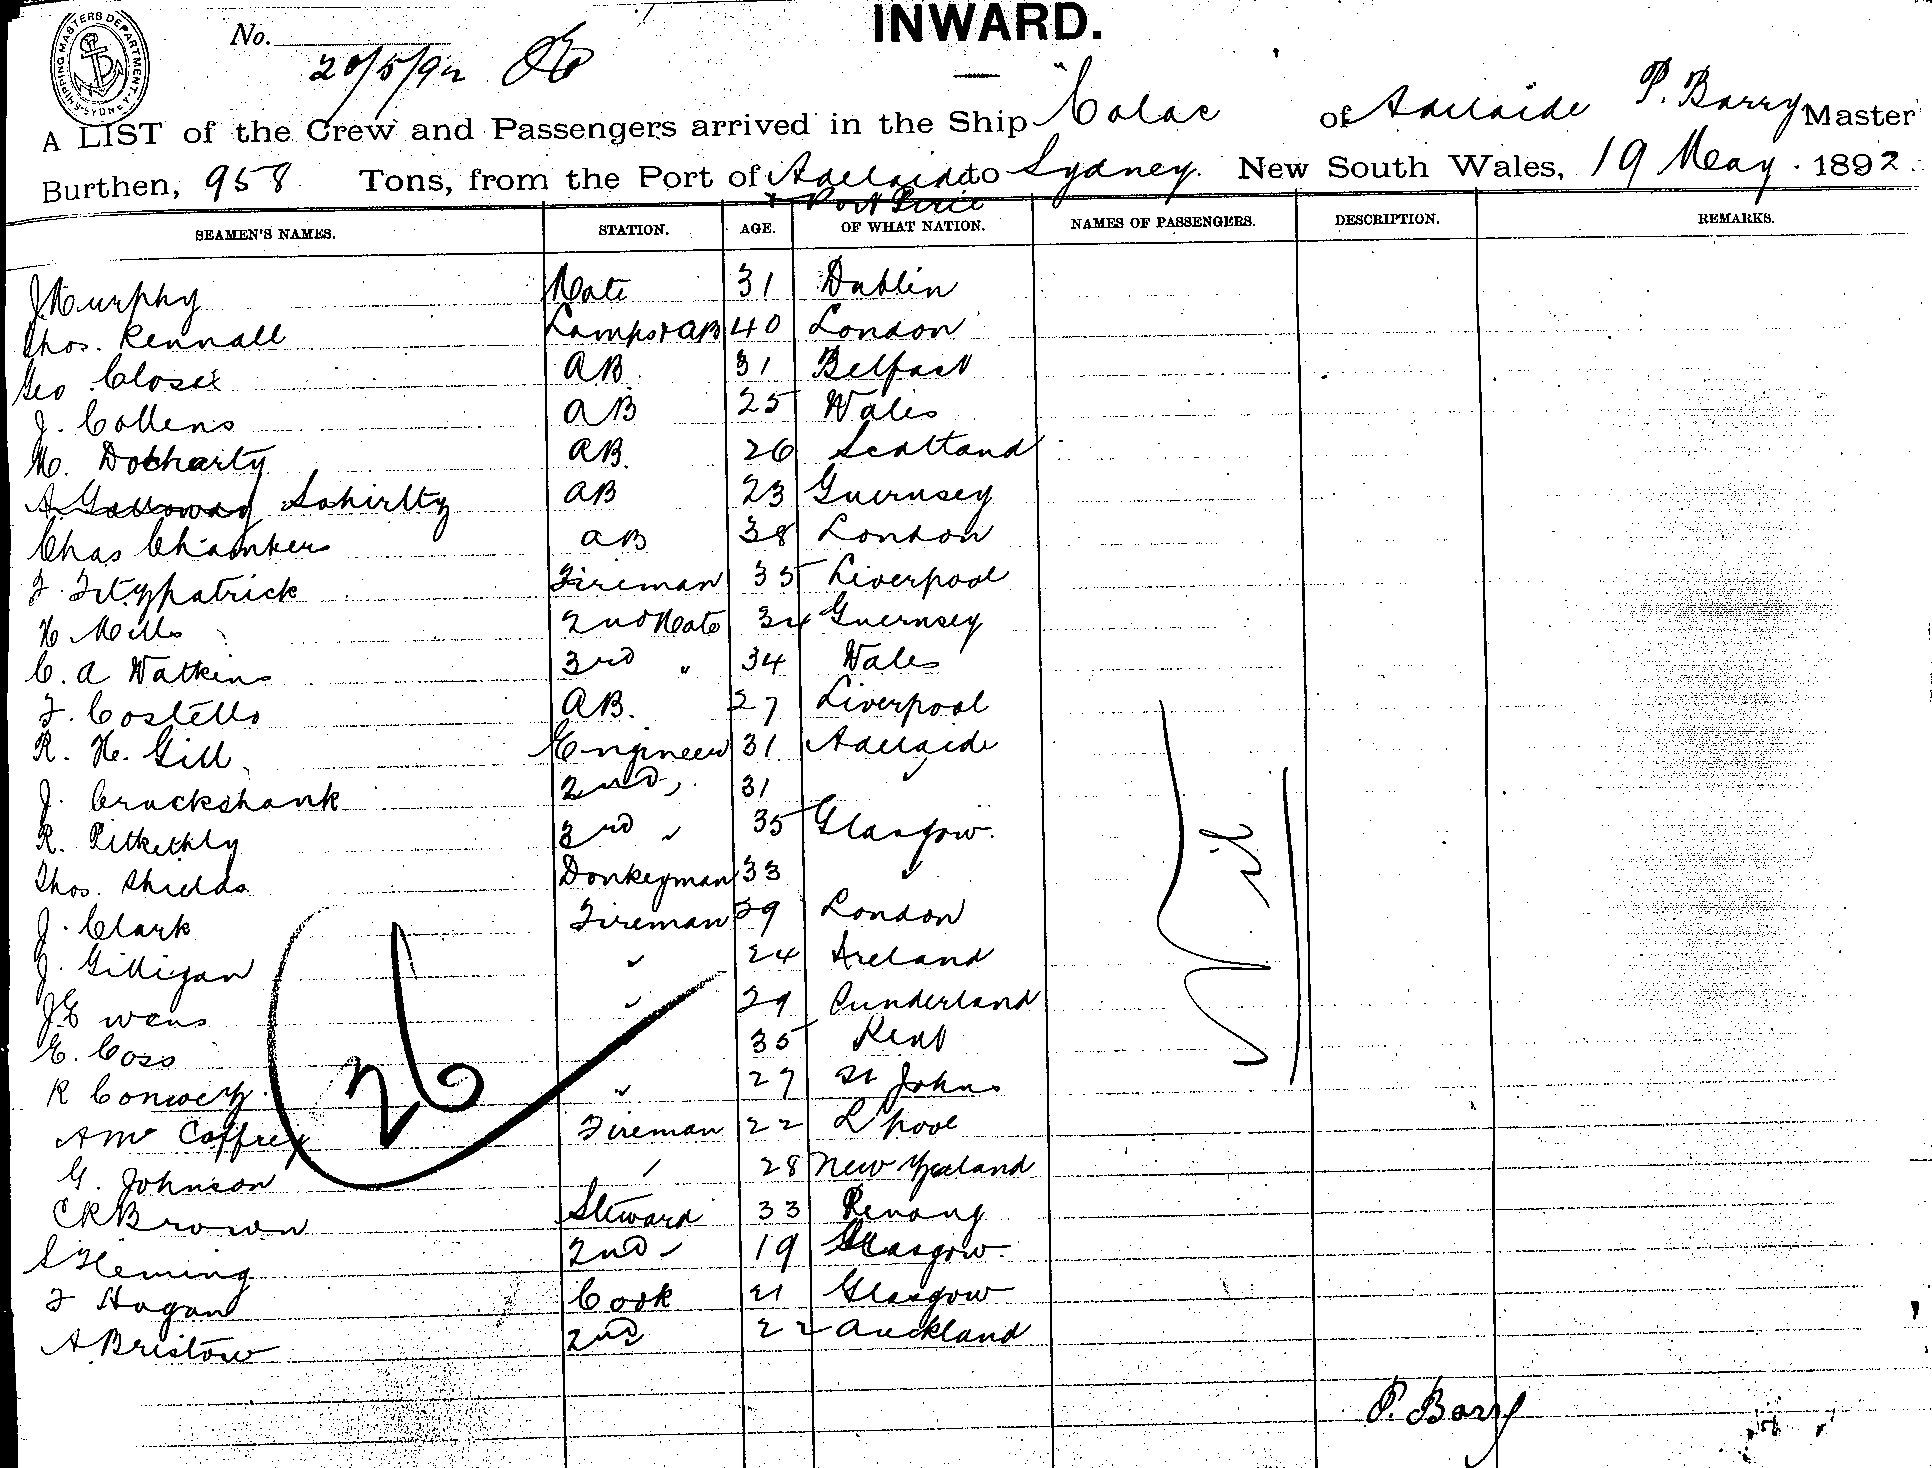 SHIPPING MASTERS DEPARTMENT SYDNEY
INWARD.
No.
20/5/92
A LIST of the Crew and Passengers arrived in the Ship "Colac of Adelaide P. Barry Master
Burthen, 958 Tons, from the Port of Adelaide to Sydney. New South Wales, 19 May. 1892.
& Port Pirie
SEAMEN'S NAMES. STATION. AGE. OF WHAT NATION. NAMES OF PASSENGERS. DESCRIPTION. REMARKS.
J Murphy Mate 31 Dublin
Thos. Rennall Lamps & AB 40 London
Geo Close AB. 31 Belfast
J. Collens AB 25 Wales
M. Docharty AB. 26 Scotland
A. Galloway AB 23 Guernsey
Chas Chambers AB 38 London
F. Fitzpatrick Fireman 35 Liverpool
H Mills 2nd Mate 34 Guernsey
C. A Watkins 3rd " 34 Wales
F. Costello AB. 27 Liverpool
R. H. Gill Engineer 31 Adelaide
J. Cruckshank 2nd " 31 "
R. Pitkethly 3rd " 35 Glasgow.
Thos. Shields Donkeyman 33 "
J. Clark Fireman 29 London
J. Gilligan " 24 Ireland
J. Ewens " 29 Cunderland
E. Coss 35 Kent
R Conwey " 27 St Johns
A Mc Caffrey Fireman 22 L'pool
G. Johnson " 28 New Zealand
C R Brown Steward 33 Penang
S Fleming 2nd " 19 Glasgow.
F Hogan Cook 21 Glasgow
A. Bristow 2nd 22 Auckland
26
Nil
P. Barry